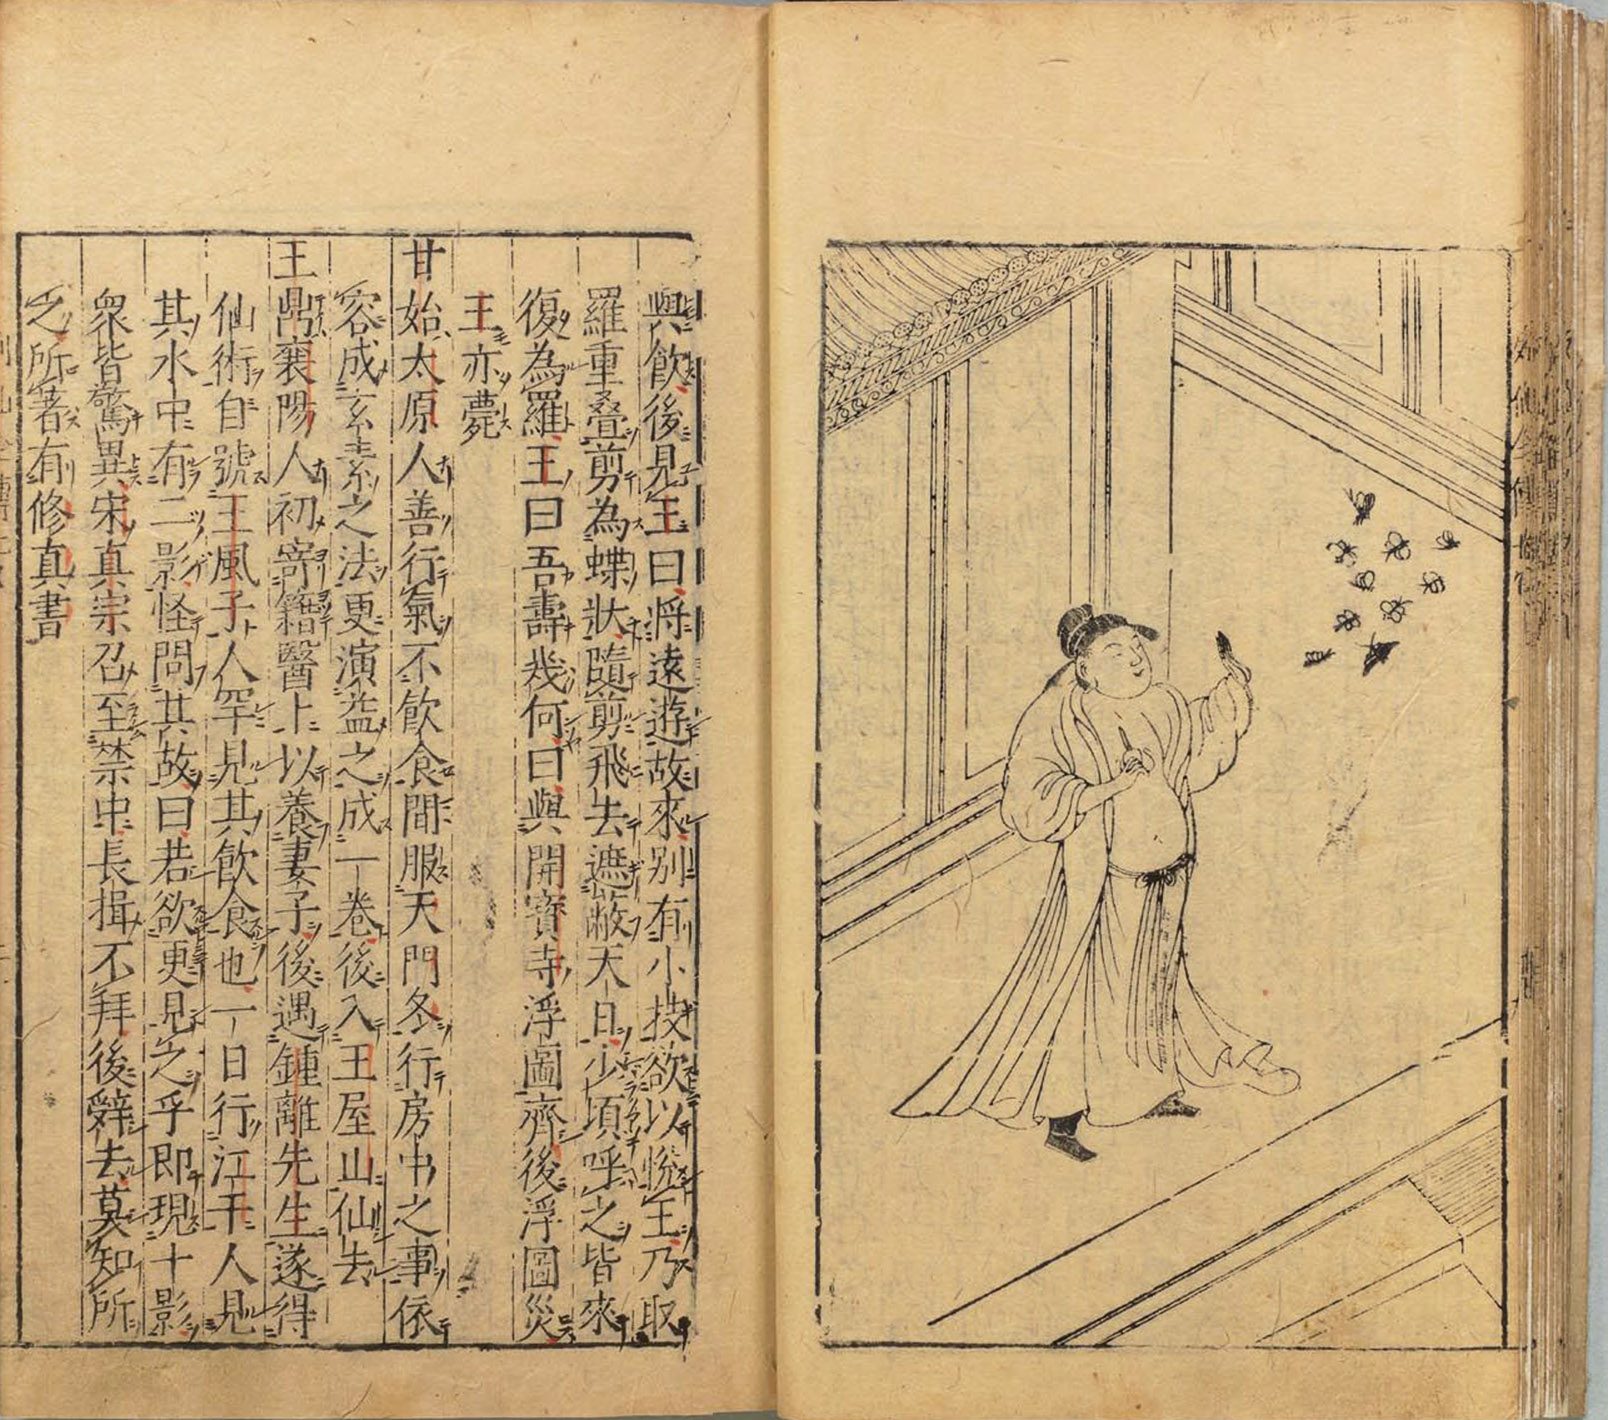 與飲後見王曰將遠遊故來別有小技欲以悅王乃取
羅重疊剪為蝶狀隨剪飛去遮蔽天日少頃呼之皆來
復為羅王曰吾壽幾何曰與開寶寺浮圖齊後浮圖災
王亦薨
甘始太原人善行氣不飲食間服天門冬行房中之事依
容成玄素之法更演益之成一卷後入王屋山仙去
王鼎襄陽人初寄籍醫卜以養妻子後遇鍾離先生遂得
仙術自號王風子人罕見其飲食也一日行江干人見
其水中有二影怪問其故曰若欲更見之乎即現十影
眾皆驚異宋真宗召至禁中長揖不拜後辭去莫知所
之所著有修真書